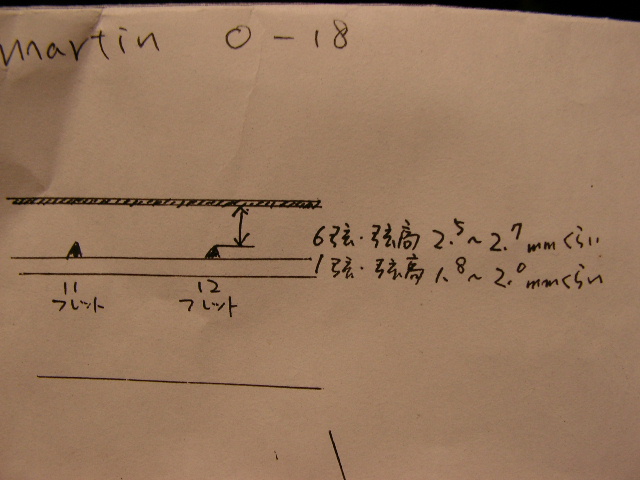 martin 0-18
6弦・弦高 2.5~2.7mmくらい
1弦・弦高 1.8~2.0mmくらい
11 12
フレット フレット